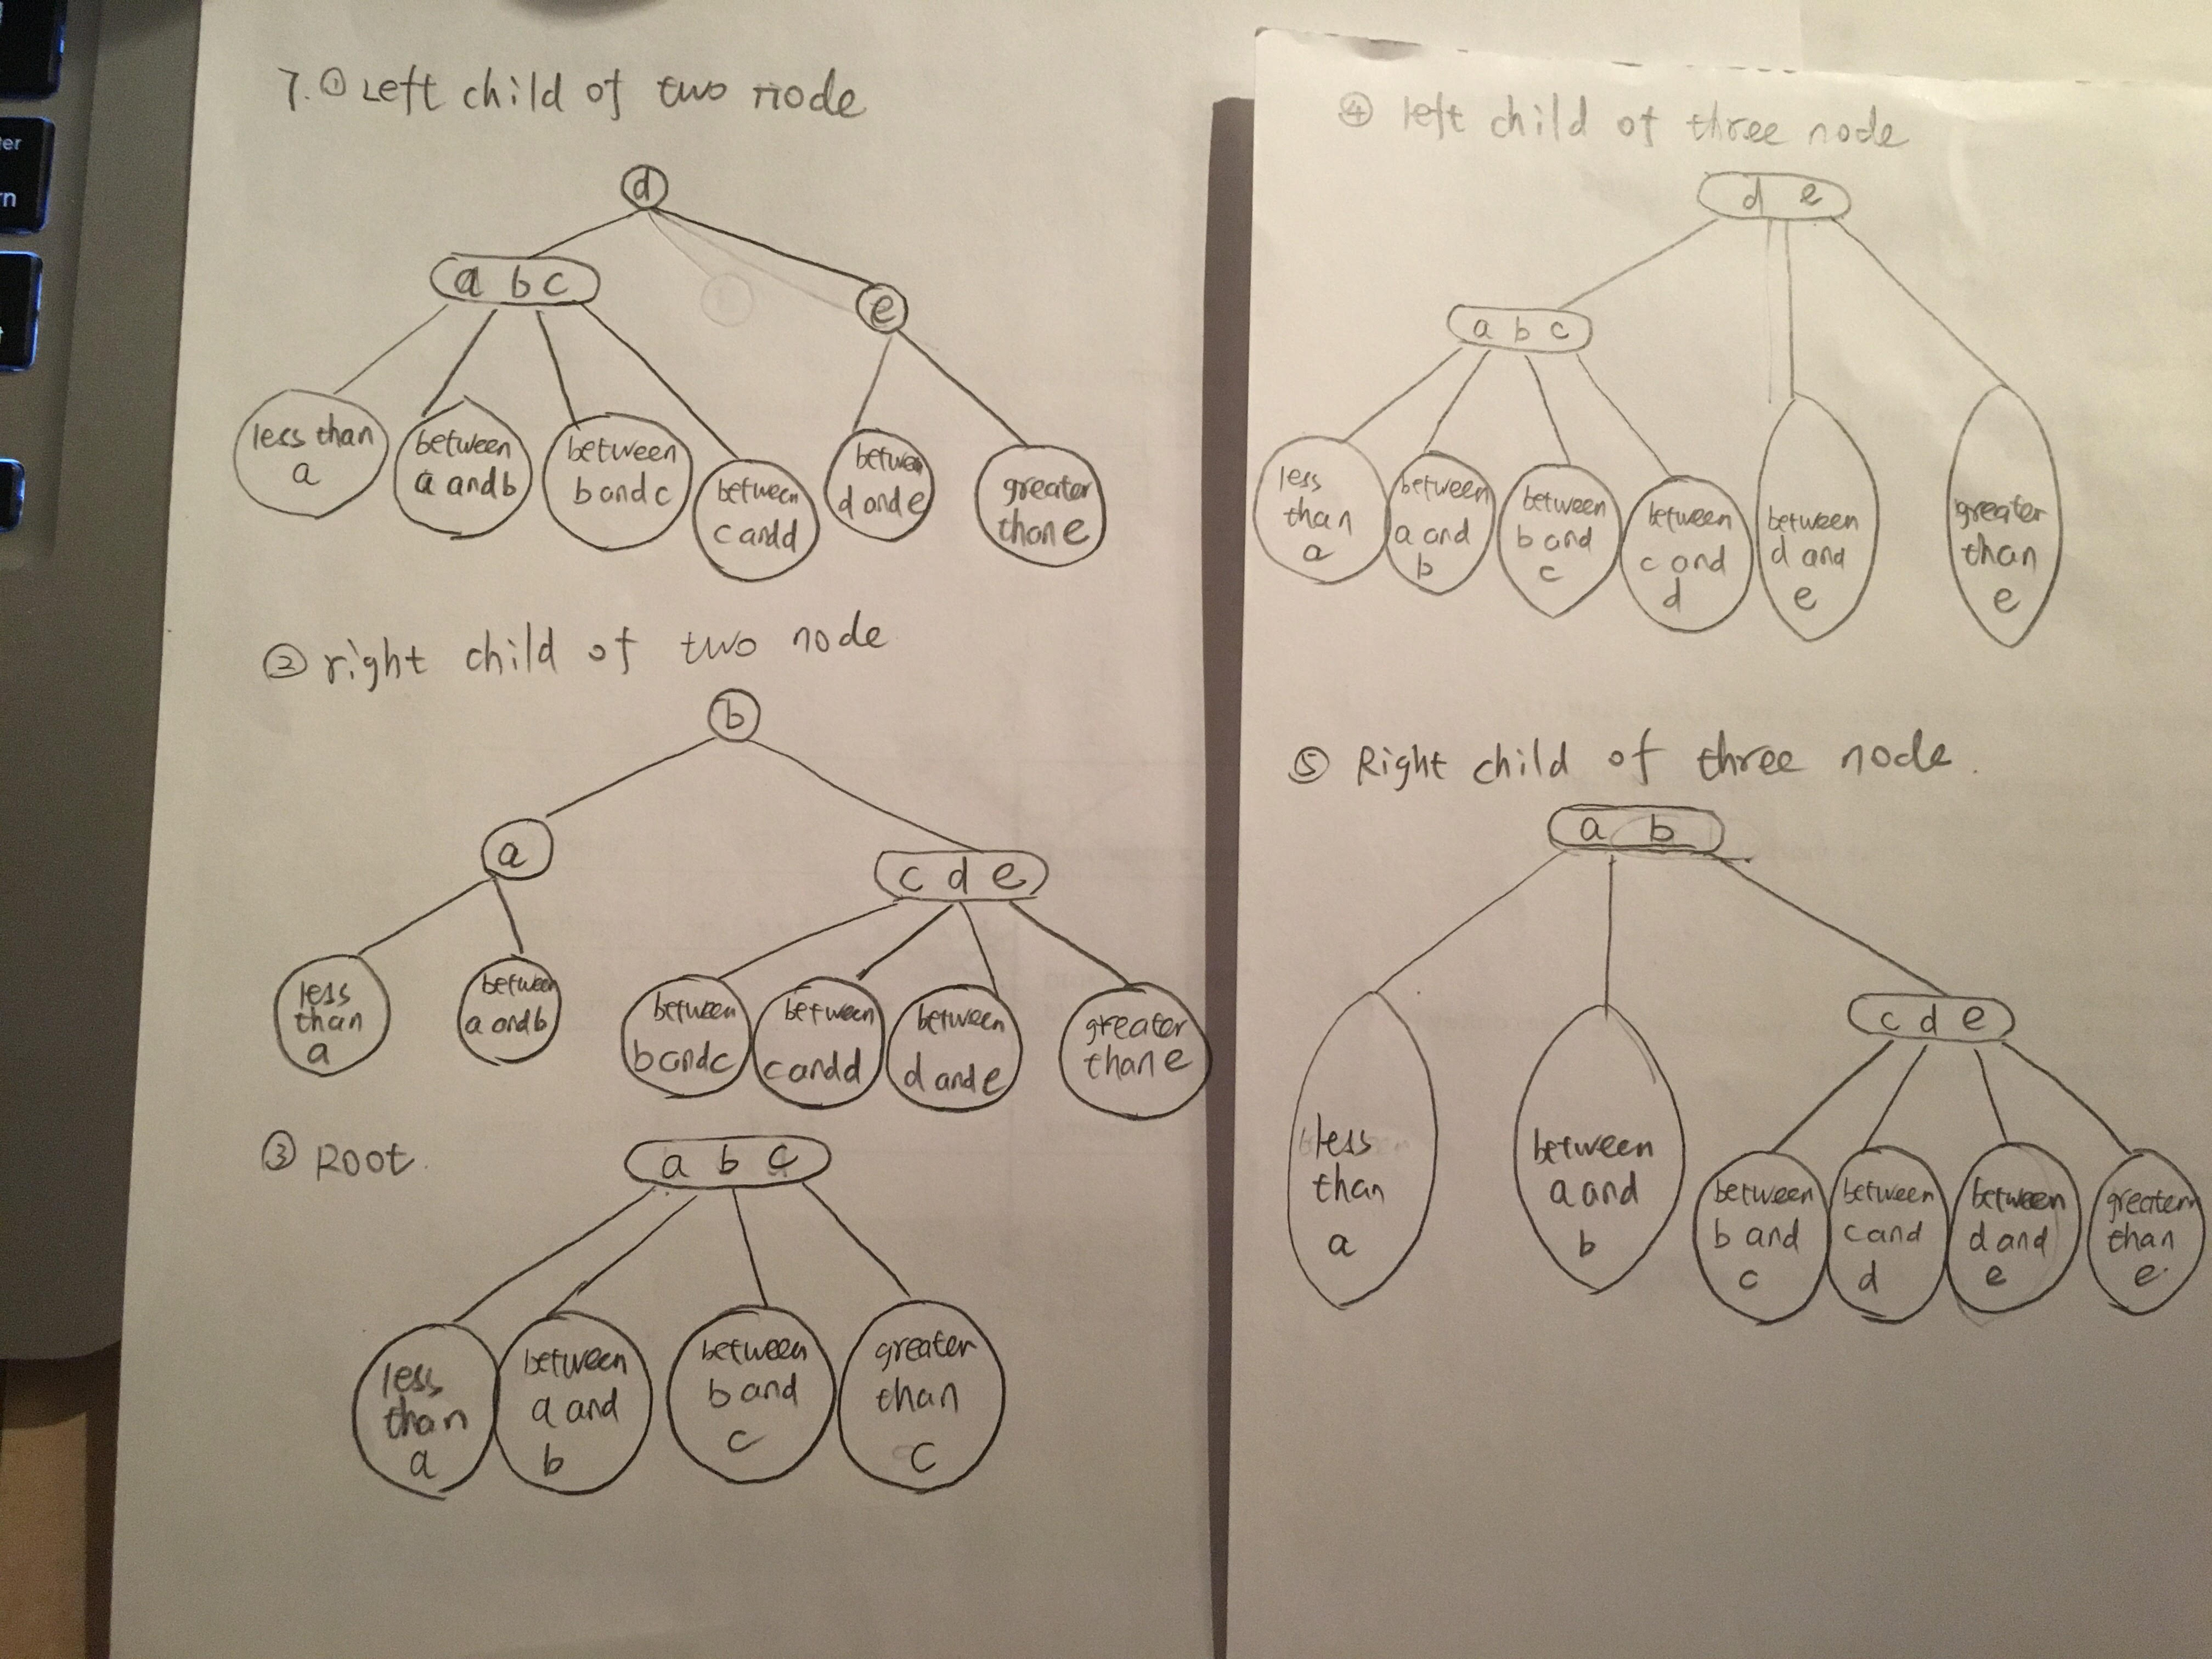 7. ① Left child of two node
d
a b c
e
less than
a
between
a and b
between
b and c
between
c and d
between
d and e
greater
than e
② right child of two node
b
a
c d e
less
than
a
between
a and b
between
b and c
between
c and d
between
d and e
greater
than e
③ Root.
a b c
less
than
a
between
a and
b
between
b and
c
greater
than
c
④ left child of three node
d e
a b c
less
than
a
between
a and
b
between
b and
c
between
c and
d
between
d and
e
greater
than
e
⑤ Right child of three node.
a b
c d e
less
than
a
between
a and
b
between
b and
c
between
c and
d
between
d and
e
greater
than
e